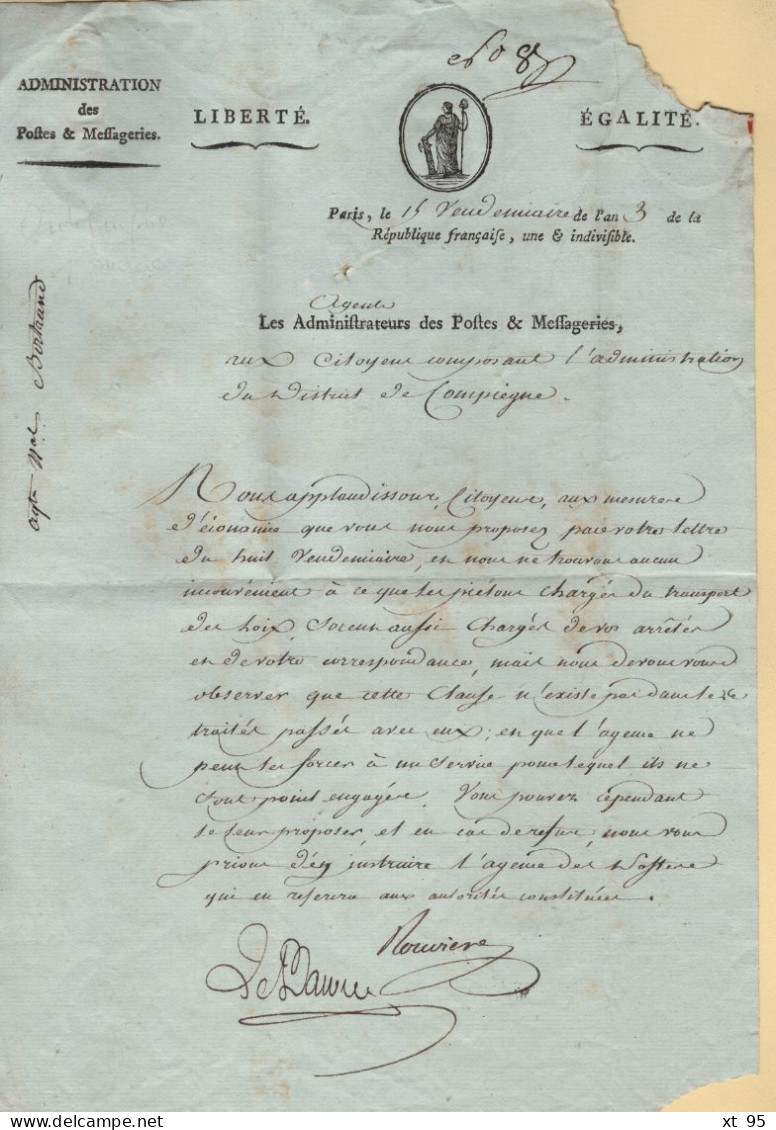 No 8
ADMINISTRATION
des
Postes & Messageries.
LIBERTÉ.
ÉGALITÉ.
Paris, le 15 Vendemiaire de l'an 3 de la
République françaiſe, une & indiviſible.
Agents
Les Adminiſtrateurs des Poſtes & Meſſageries,
aux Citoyens composant l'administration
du District de Compiegne.
Agt Nal Bertrand
Nous applaudissons, Citoyens, aux mesures
d'économie que vous nous proposez par votre lettre
du huit Vendemiaire, et nous ne trouvons aucun
inconvénient à ce que les piétons chargés du transport
des Loix, soient aussi chargés de vos arrêtés
et de votre correspondance, mais nous devons vous
observer que cette Clause n'existe pas dans les
traités passés avec eux; et que l'agence ne
peut les forcer à un service pour lequel ils ne
sont point engagés. Vous pouvez cependant
le leur proposer, et en cas de refus, nous vous
prions d'en instruire l'agence des Postes
qui en referera aux autorités constituées.
Rouviere
xt 95